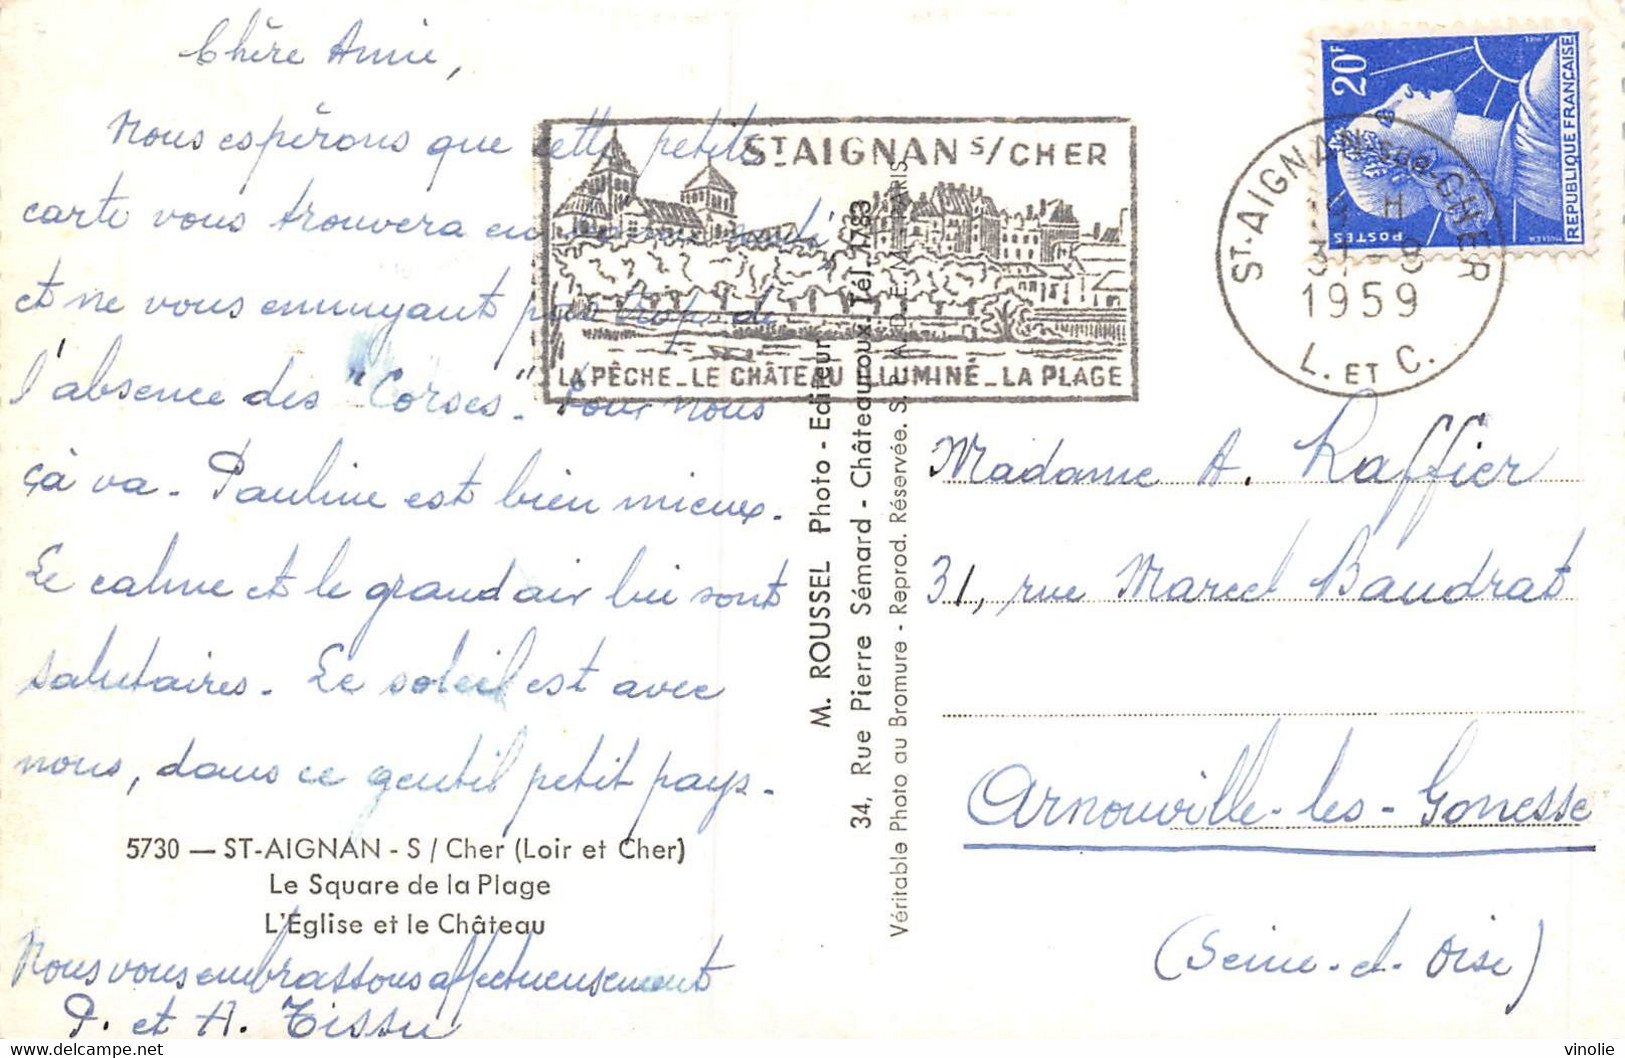 Chère Amie,
Nous espérons que cette petite
carte vous trouvera en bonne santé
et ne vous ennuyant pas trop de
l'absence des "Corses". Pour nous
çà va - Pauline est bien mieux.
Le calme et le grand air lui sont
salutaires. Le soleil est avec
nous, dans ce gentil petit pays.
5730 — ST-AIGNAN - S / Cher (Loir et Cher)
Le Square de la Plage
L'Eglise et le Château
Nous vous embrassons affectueusement
P. et A. Tissu
ST AIGNAN S/CHER
LA PÊCHE _ LE CHÂTEAU ILLUMINÉ _ LA PLAGE
M. ROUSSEL Photo - Editeur
34, Rue Pierre Sémard - Châteauroux Tél. 1783
Véritable Photo au Bromure - Reprod. Réservée. PARIS
20F
REPUBLIQUE FRANÇAISE
POSTES
MULLER
ST-AIGNAN-Sur-CHER
H
31-8
1959
L. ET C.
Madame A. Raffier
31, rue Marcel Baudrat
Arnouville-les-Gonesse
(Seine-et-Oise)
https://www.delcampe.net
vinolie